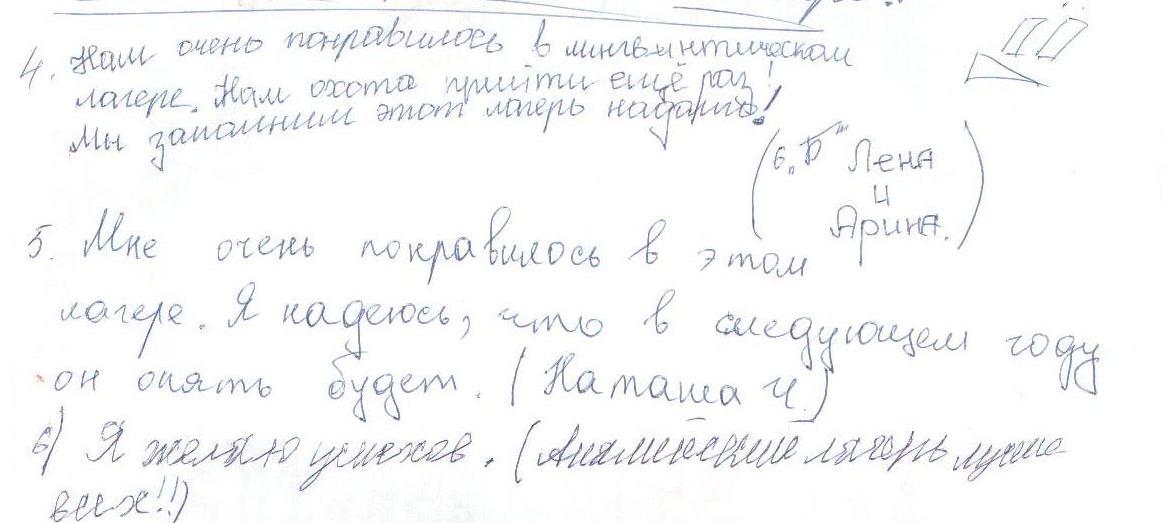 4. Нам очень понравилось в лингвинтическом
лагере. Нам охота прийти ещё раз!
Мы запомним этот лагерь надолго!
(6 „Б" Лена
и
Арина.)
5. Мне очень понравилось в этом
лагере. Я надеюсь, что в следующем году
он опять будет. (Наташа Ч.)
6) Я желаю успехов. (Английский лагерь лучше
всех!!)